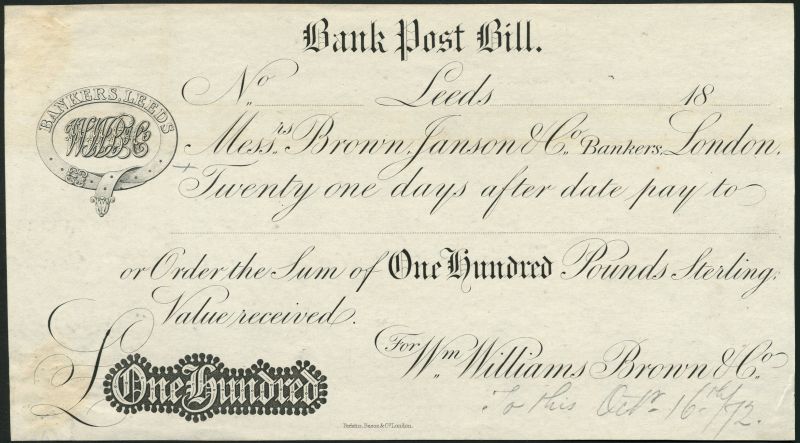 Bank Post Bill.
No Leeds 18
BANKERS. LEEDS
WWB&Co
Messrs. Brown, Janson & Co. Bankers, London.
Twenty one days after date pay to
or Order the Sum of One Hundred Pounds Sterling,
Value received.
For Wm. Williams Brown & Co.
£ One Hundred
To this Octr. 16th/72.
Perkins, Bacon & Co. London.